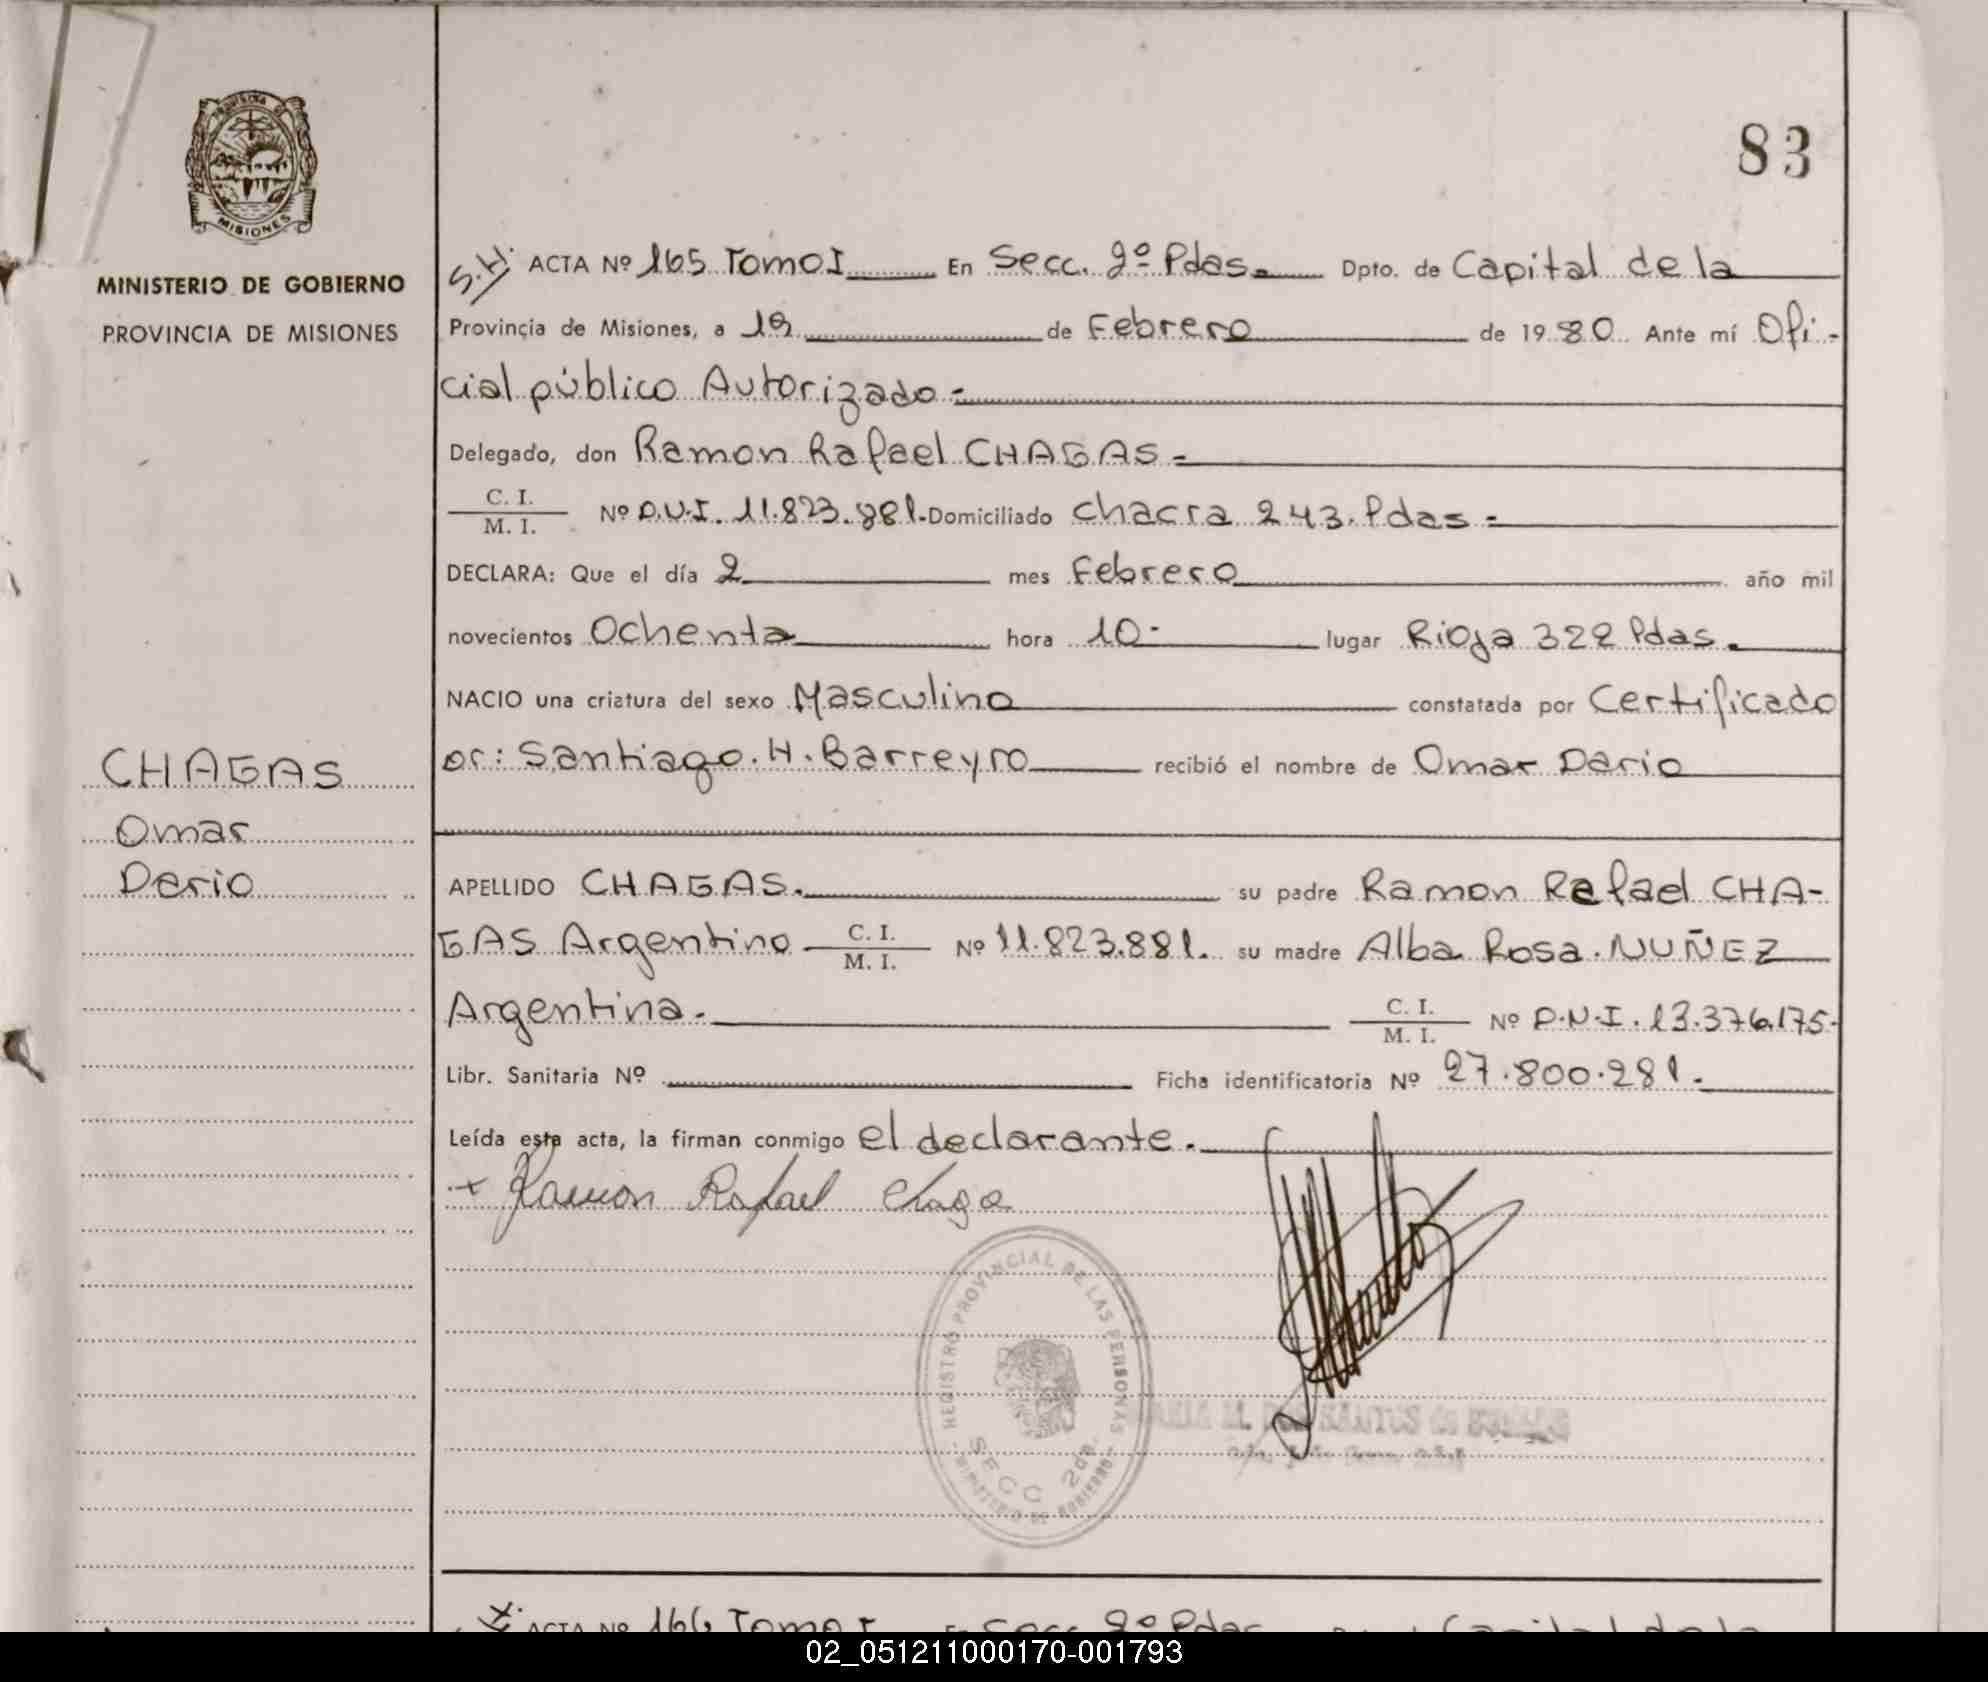 83
PROVINCIA DE
MISIONES
MINISTERIO DE GOBIERNO
PROVINCIA DE MISIONES
S.H. ACTA Nº 165 Tomo I En Secc. 2º Pdas. Dpto. de Capital de la
Provincia de Misiones, a 19 de Febrero de 1980 Ante mí Ofi-
cial público Autorizado-
Delegado, don Ramon Rafael CHAGAS-
C. I.
M. I. Nº D.N.I. 11.823.881. Domiciliado chacra 243. Pdas-
DECLARA: Que el día 2 mes Febrero año mil
novecientos Ochenta hora 10- lugar Rioja 322 Pdas.
NACIO una criatura del sexo Masculino constatada por Certificado
Dr: Santiago. H. Barreyro recibió el nombre de Omar Dario
CHAGAS
Omar
Dario
APELLIDO CHAGAS. su padre Ramon Rafael CHA-
GAS Argentino C. I.
M. I. Nº 11.823.881. su madre Alba Rosa. NUÑEZ
Argentina. C. I.
M. I. Nº D.N.I. 13.376.175-
Libr. Sanitaria Nº Ficha identificatoria Nº 27.800.281.
Leída esta acta, la firman conmigo el declarante.
Ramon Rafael Chaga
REGISTRO PROVINCIAL DE LAS PERSONAS
SECC 2da
MINISTERIO DE GOBIERNO
M. DOS SANTOS de
ACTA Nº 166 Tomo I En Secc 2º Pdas Capital de la
02_051211000170-001793